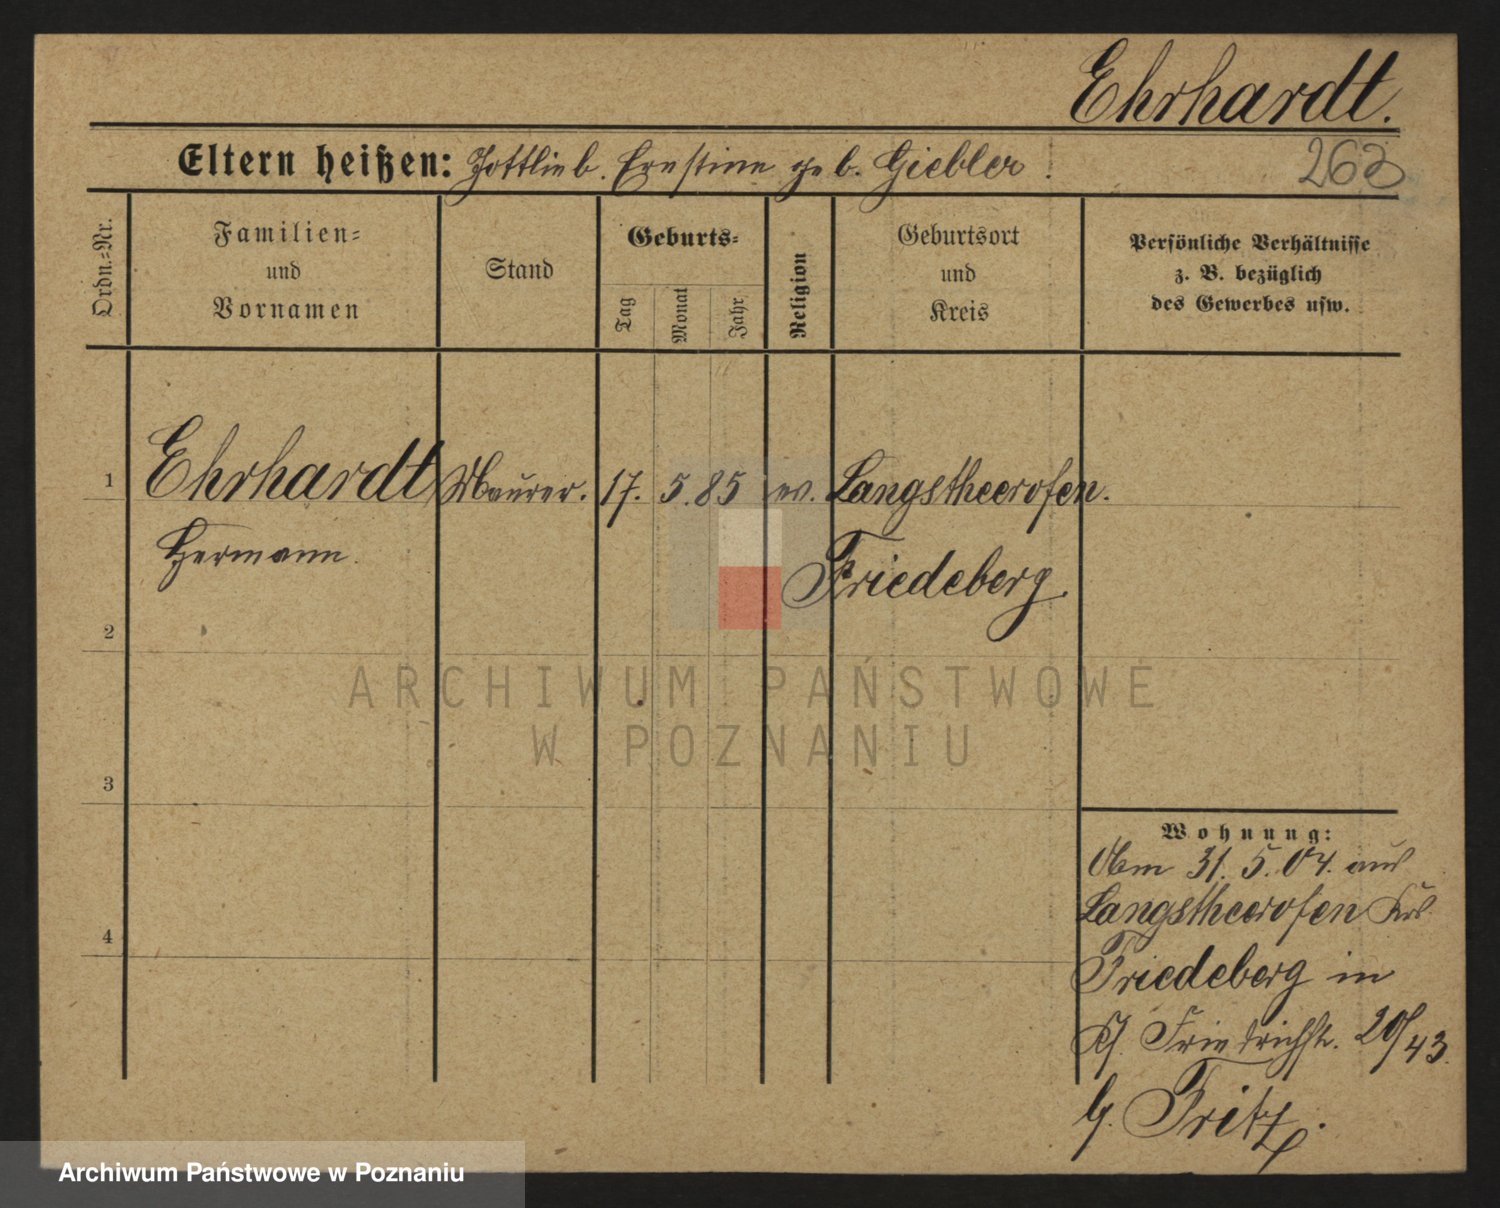 Ehrhardt.
Eltern heißen: Gottlieb. Ernstine geb. Giebler.
263
Ordn.-Nr.
Familien-
und
Vornamen
Stand
Geburts-
Tag
Monat
Jahr
Religion
Geburtsort
und
Kreis
Persönliche Verhältnisse
z. B. bezüglich
des Gewerbes usw.
1
Ehrhardt Maurer. 17. 5. 85 ev. Langstheerofen.
Hermann.
Friedeberg.
2
3
4
ARCHIWUM PAŃSTWOWE
W POZNANIU
Wohnung:
Am 31. 5. 04. aus
Langstheerofen Krs.
Friedeberg in
Friedrichstr. 20/43.
b. Fritz.
Archiwum Państwowe w Poznaniu